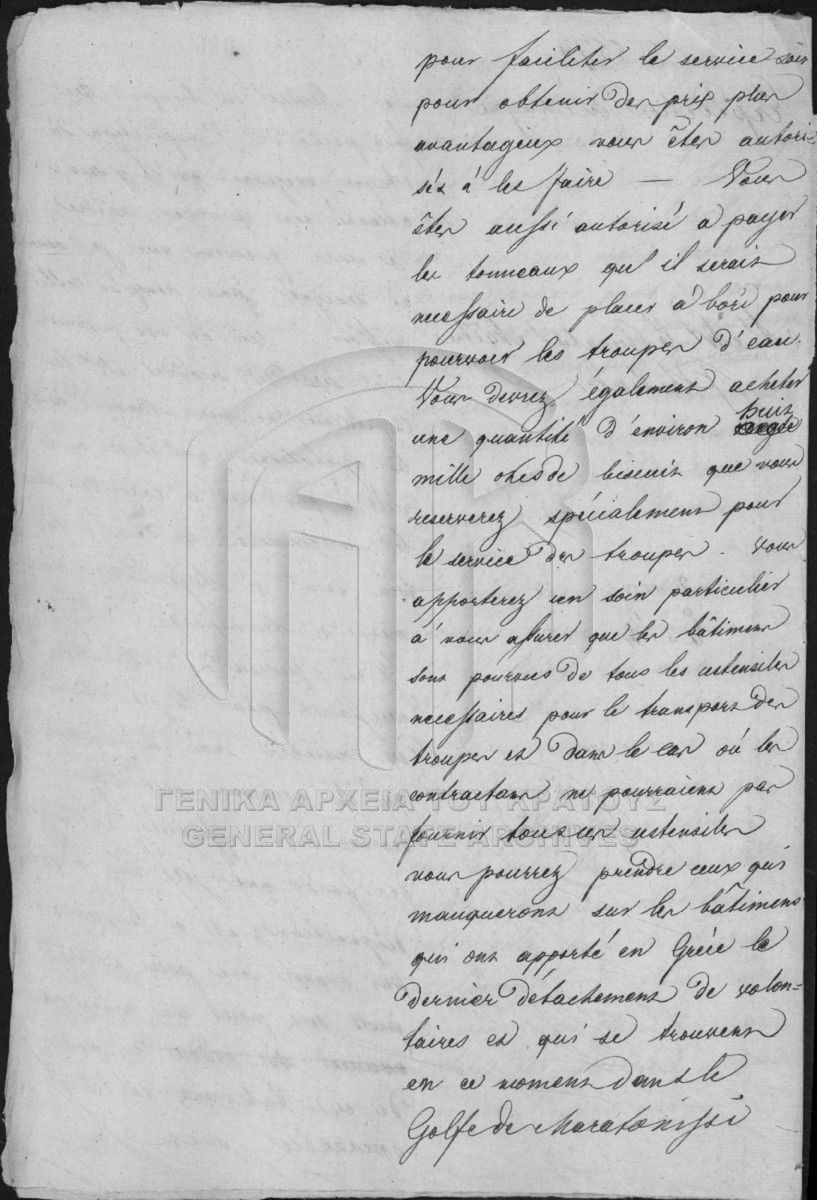 pour faciliter le service soit
pour obtenir des prix plus
avantageux vous êtes autori-
sés à les faire — Vous
êtes aussi autorisé a payer
les tonneaux qu'il serait
necessaire de placer à bord pour
pourvoir les troupes d'eau.
Vous devrez également acheter
huit
une quantité d'environ
mille okes de biscuit que vous
reserverez spécialement pour
le service des troupes. Vous
apporterez un soin particulier
à vous assurer que les bâtimens
sont pourvus de tous les ustensiles
necessaires pour le transport des
troupes et dans le cas où les
contractans ne pourraient pas
fournir tous ces ustensiles
vous pourrez prendre ceux qui
manqueront sur les bâtimens
qui ont apporté en Grèce le
dernier détachement de volon-
taires et qui se trouvent
en ce moment dans le
Golfe de Maratonissi
ΓΕΝΙΚΑ ΑΡΧΕΙΑ ΤΟΥ ΚΡΑΤΟΥΣ
GENERAL STATE ARCHIVES